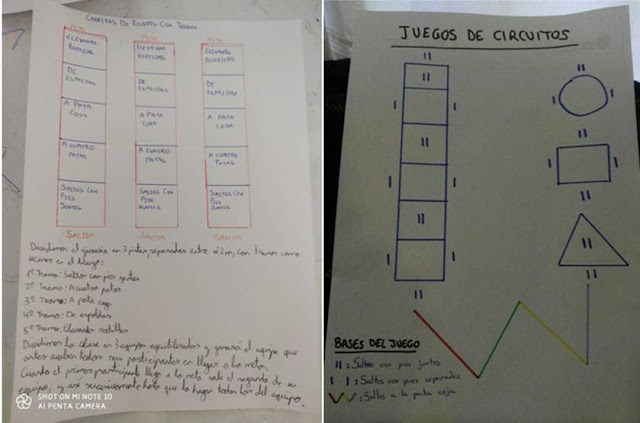 CARRERAS DE RELEVOS CON TRAMOS
META META META
ELEVANDO RODILLAS ELEVANDO RODILLAS ELEVANDO RODILLAS
DE ESPALDAS DE ESPALDAS DE ESPALDAS
A PATA COJA A PATA COJA A PATA COJA
A CUATRO PATAS A CUATRO PATAS A CUATRO PATAS
SALTOS CON PIES JUNTOS SALTOS CON PIES JUNTOS SALTOS CON PIES JUNTOS
SALIDA SALIDA SALIDA
Dividimos el gimnasio en 3 pistas, separadas entre sí 2m, con tramos como
vemos en el dibujo:
1º Tramo: Saltos con pies juntos
2º Tramo: A cuatro patas
3º Tramo: A pata coja
4º Tramo: De espaldas
5º Tramo: Elevando rodillas
Dividimos la clase en 3 equipos equilibrados y ganará el equipo que
antes acaben todos sus participantes en llegar a la meta.
Cuando el primer participante llega a la meta sale el segundo de su
equipo, y así sucesivamente hasta que lo hagan todos los del equipo.
SHOT ON MI NOTE 10
AI PENTA CAMERA
JUEGOS DE CIRCUITOS
BASES DEL JUEGO
II : Saltos con pies juntos
I I : Saltos con pies separados
: Saltos a la pata coja